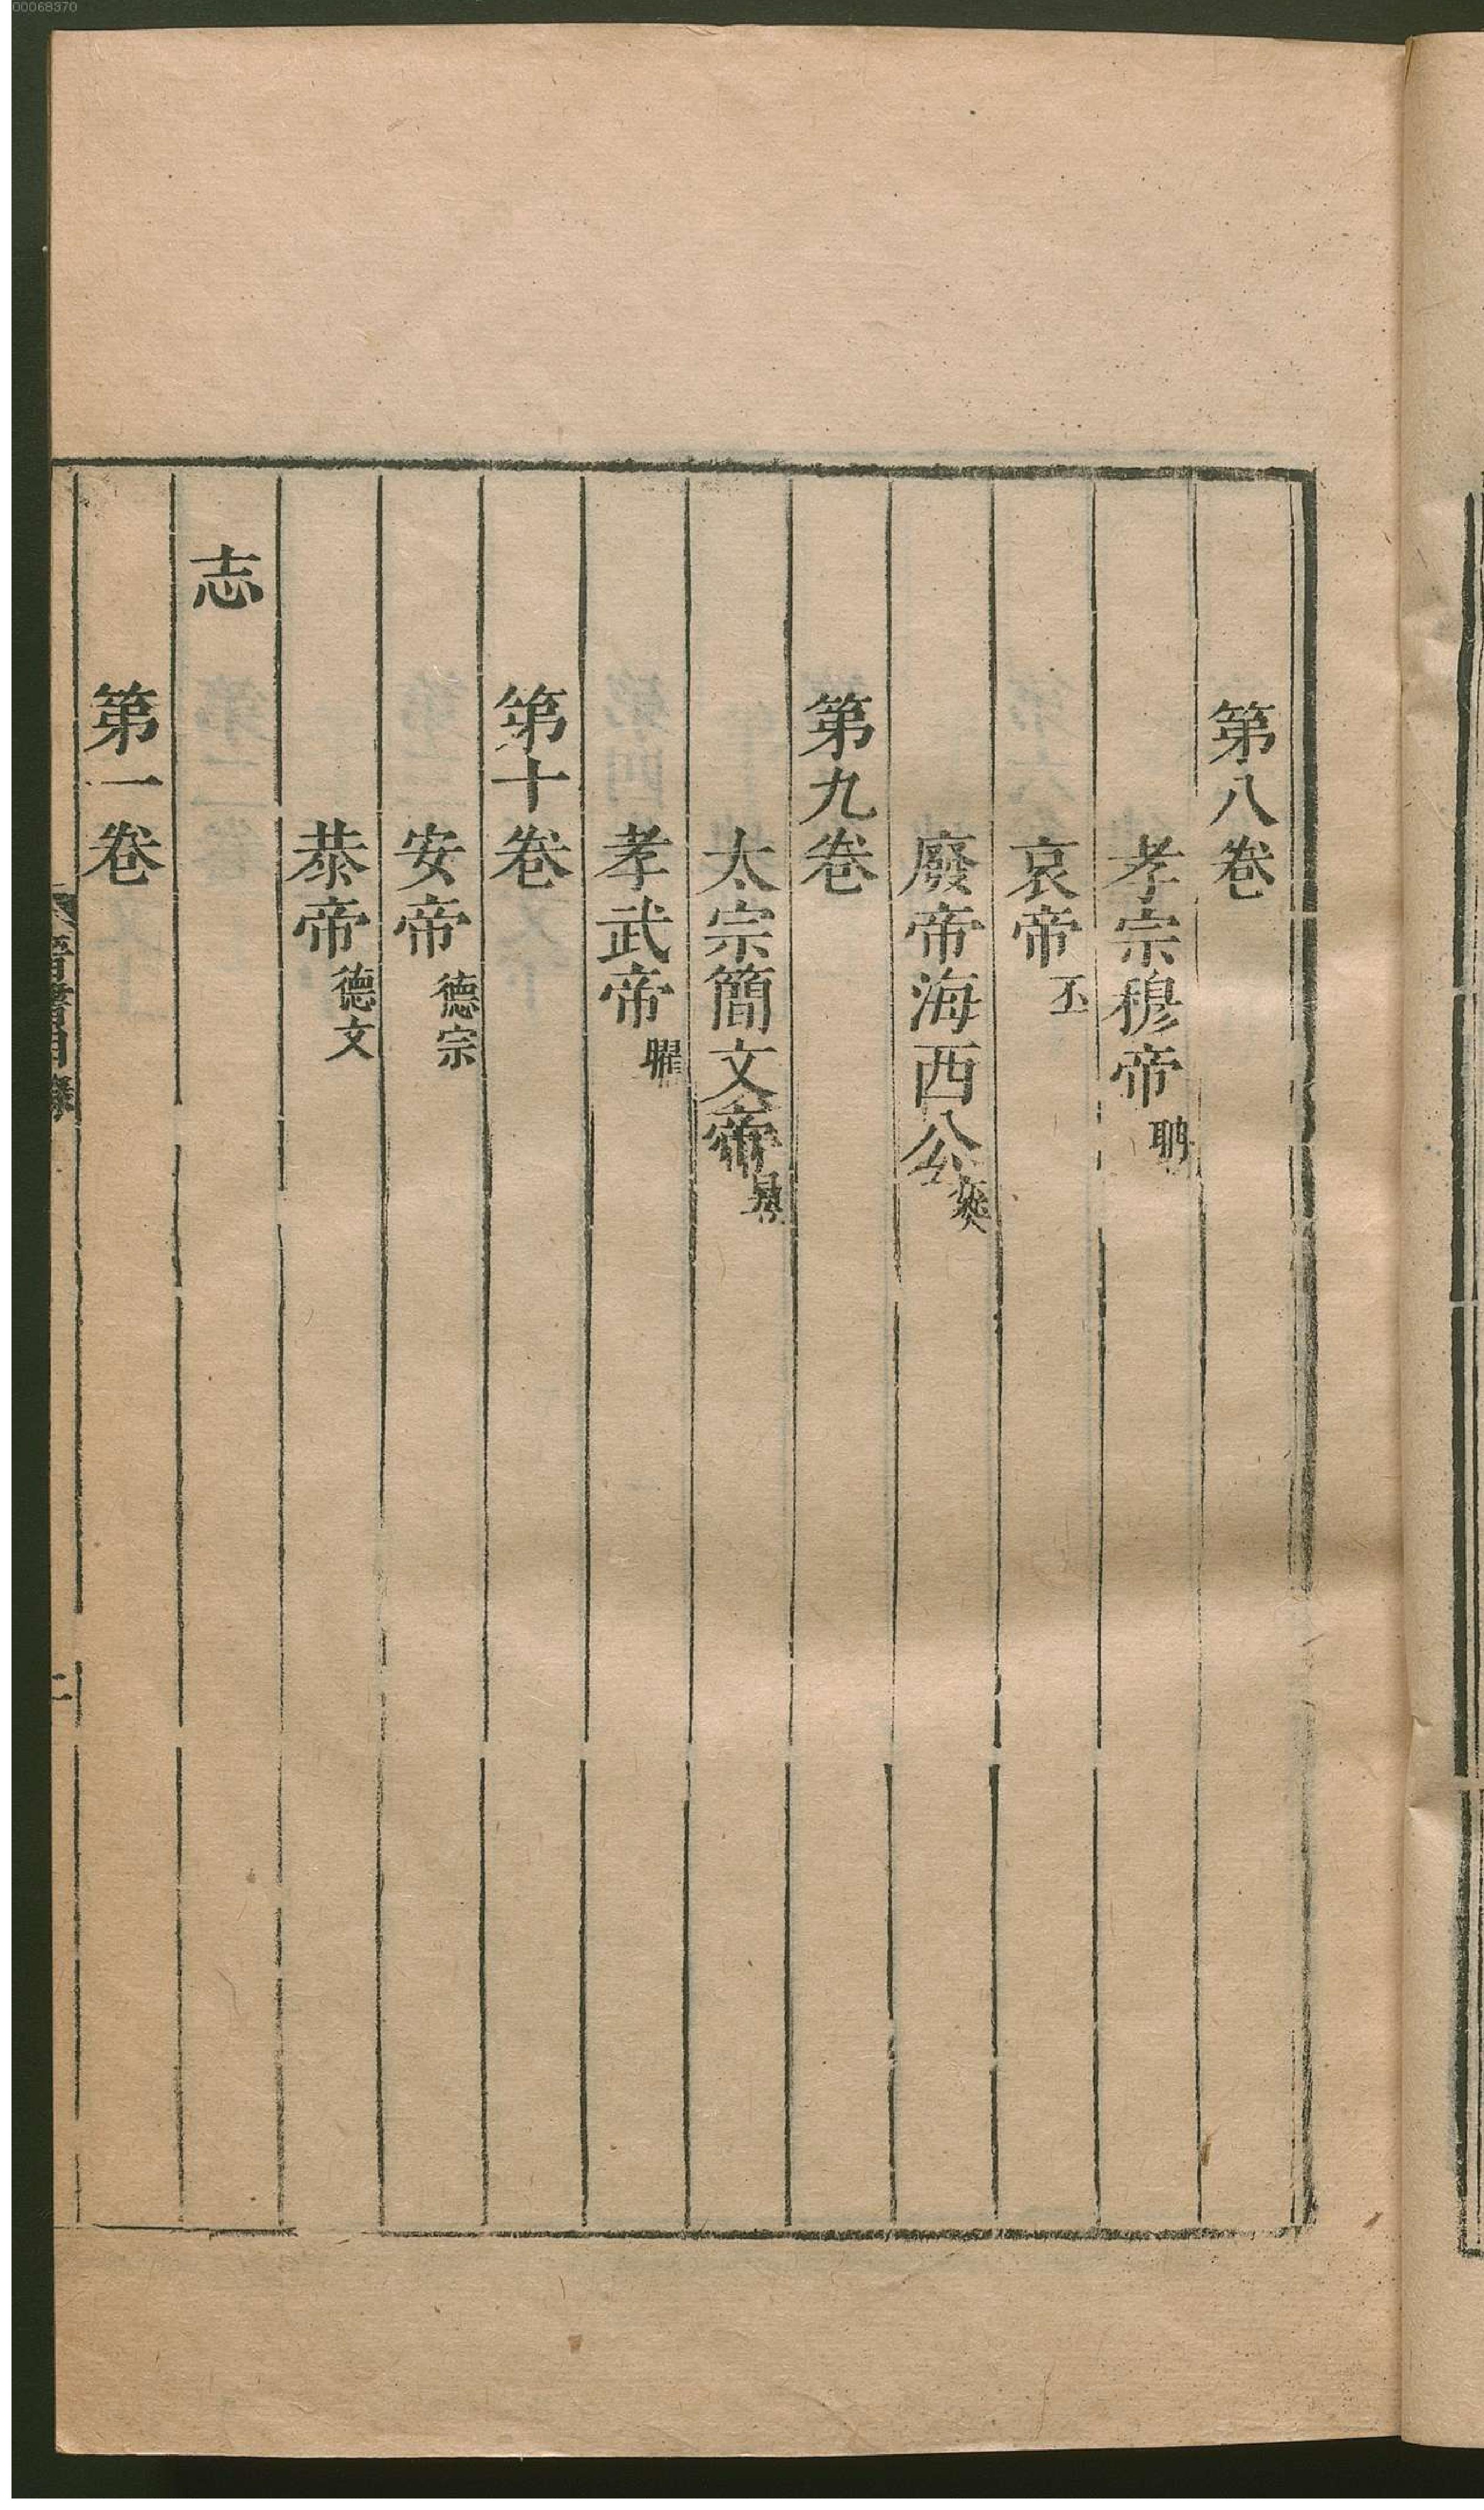 第八卷
孝宗穆帝 聃
哀帝 丕
廢帝海西公 奕
第九卷
太宗簡文帝 昱
孝武帝 曜
第十卷
安帝 德宗
恭帝 德文
志
第一卷
晉書目錄 二
00068370